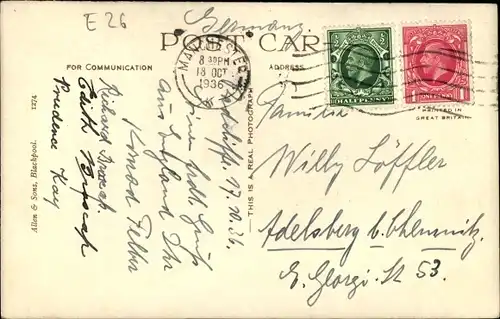 E 26
Germany
POST CARD
FOR COMMUNICATION
ADDRESS
MANCHESTER
8 PM
18 OCT
1936
HALFPENNY
1 ONE PENNY 1
PRINTED IN
GREAT BRITAIN
THIS IS A REAL PHOTOGRAPH
Allen & Sons, Blackpool.
1274
Radcliffe 17. 10. 36.
Einen
Gruß
aus England Ihr
Konrad Felber
Richard
Edith
Prudence Kay
Familie
Willy Löffler
Adelsberg b. Chemnitz
E. Georgi. St 53.